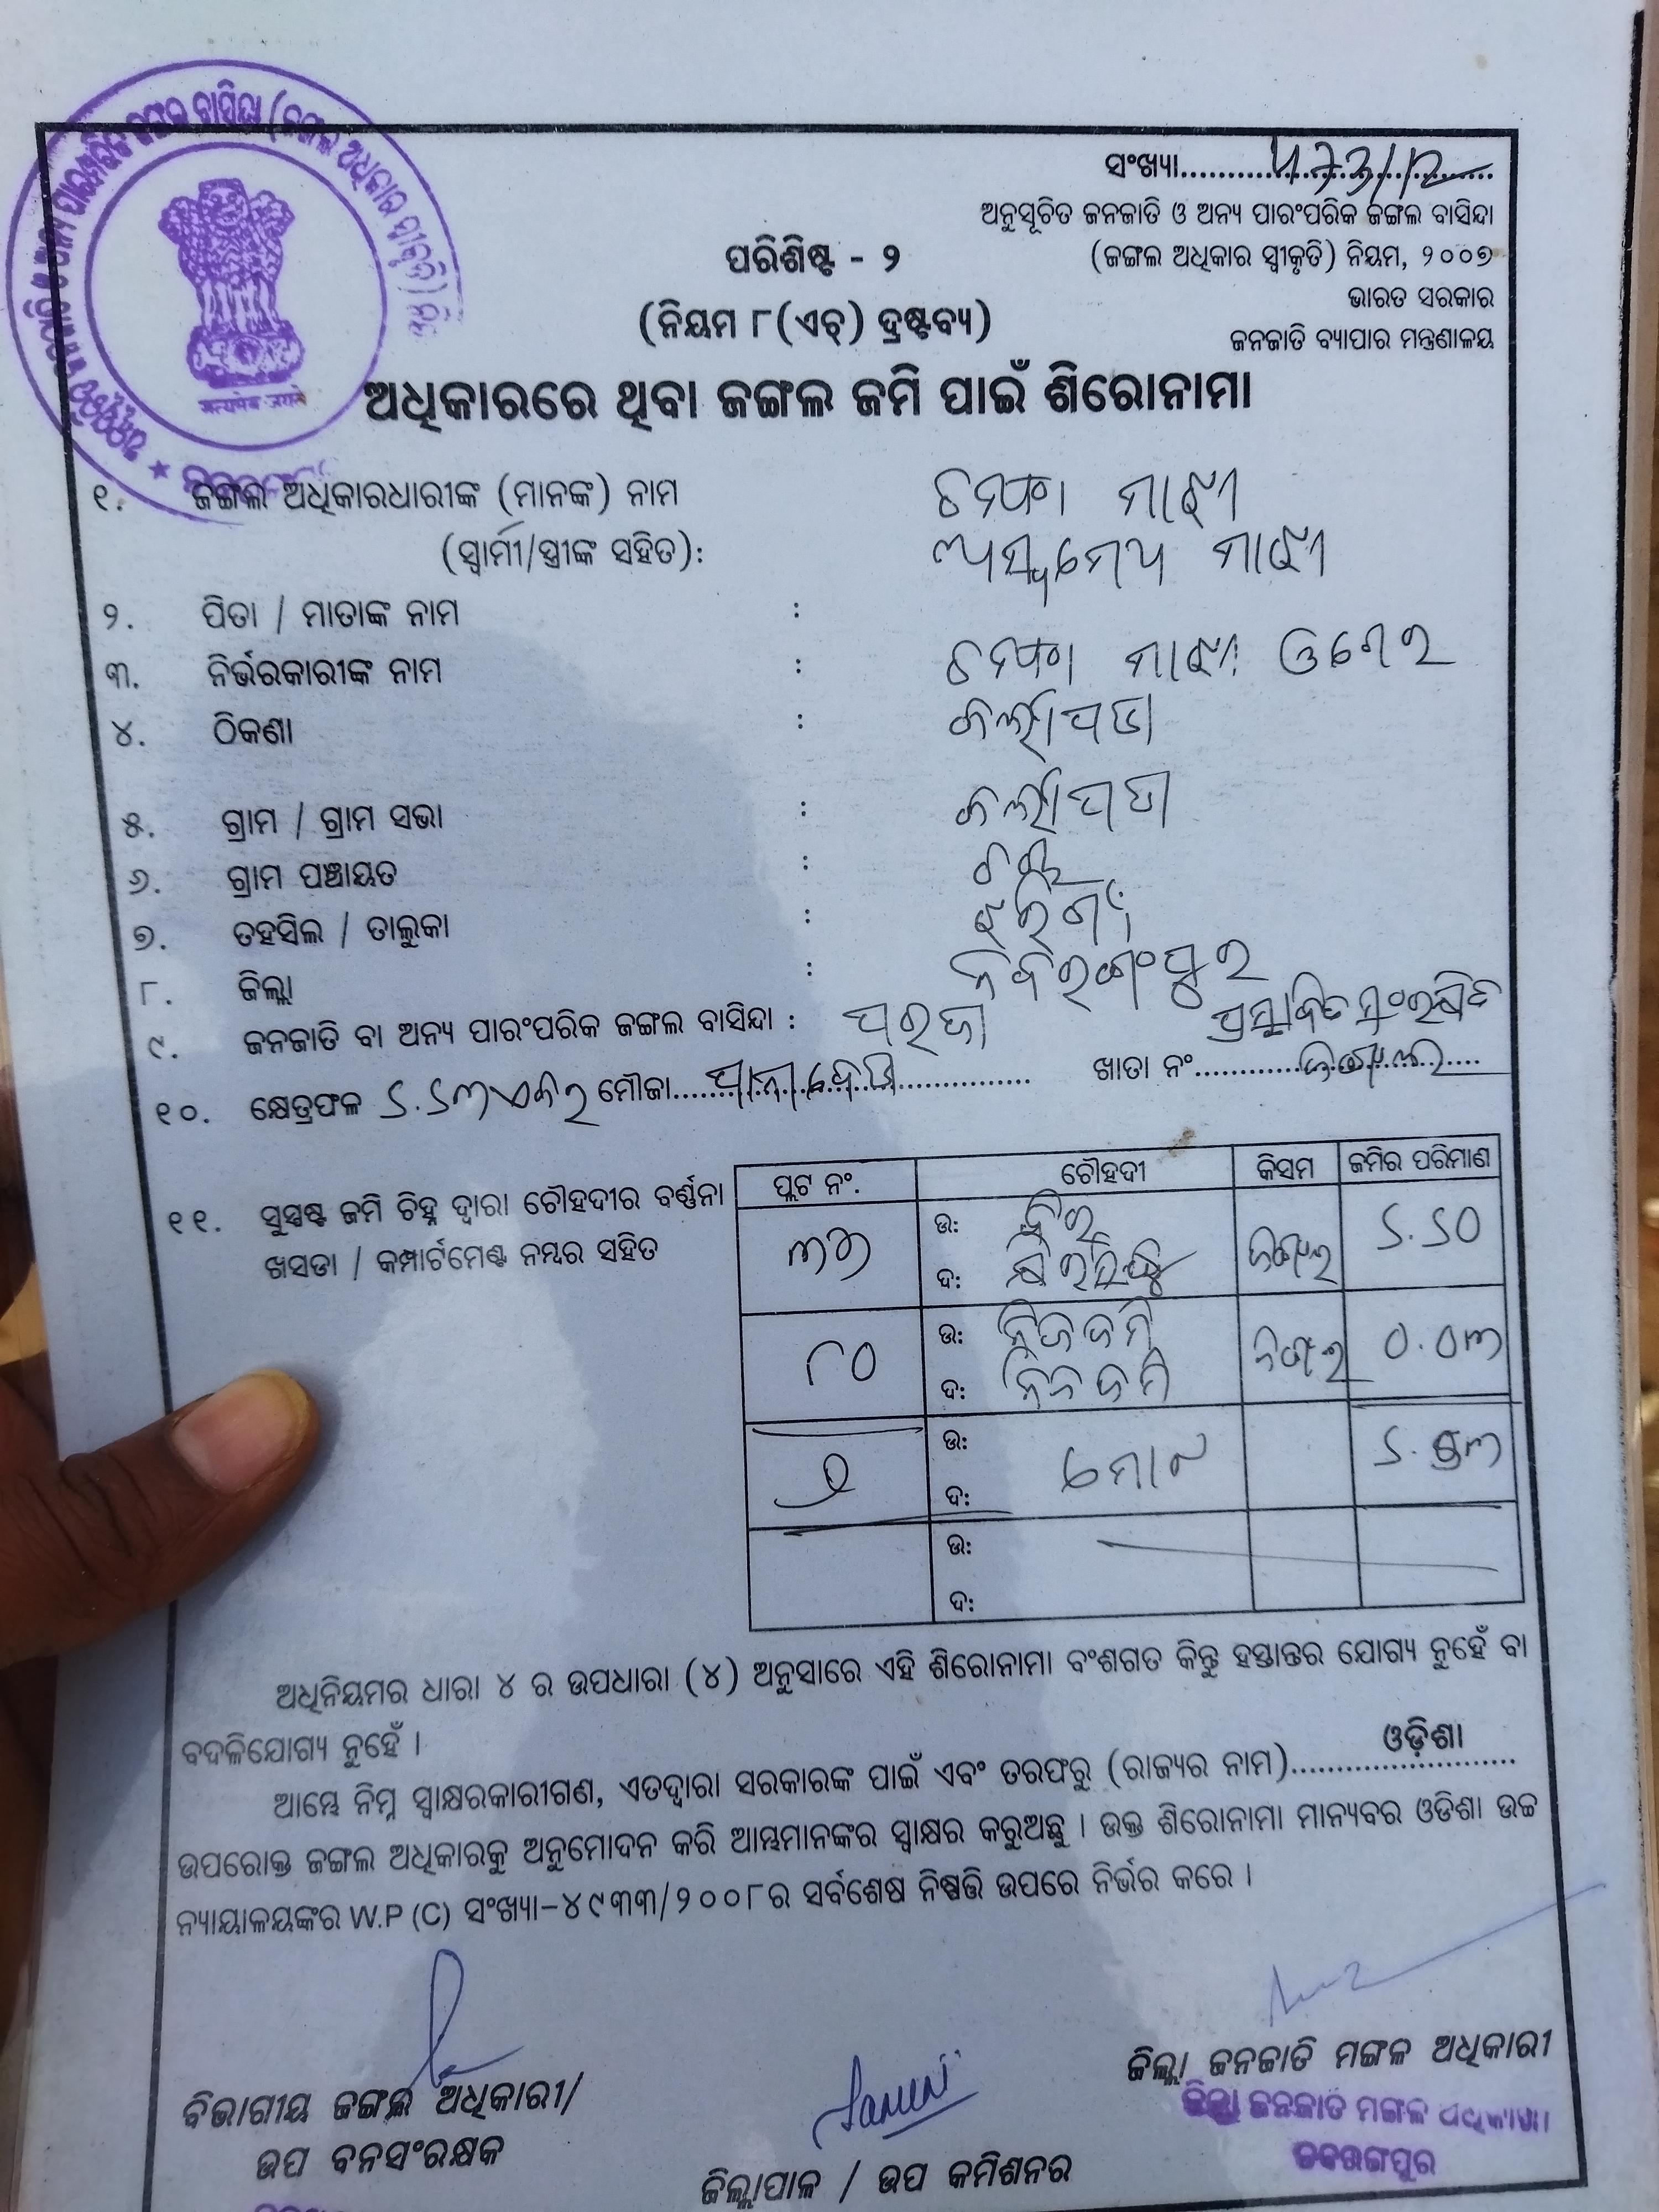 ସଂଖ୍ୟା
ଅନୁସୂଚିତ ଜନଜାତି ଓ ଅନ୍ୟ ପାରଂପରିକ ଜଙ୍ଗଲ ବାସିନ୍ଦା
(ଜଙ୍ଗଲ ଅଧିକାର ସ୍ୱୀକୃତି) ନିୟମ, ୨୦୦୭
ଭାରତ ସରକାର
ଜନଜାତି ବ୍ୟାପାର ମନ୍ତ୍ରଣାଳୟ
ପରିଶିଷ୍ଟ - ୨
(ନିୟମ ୮(ଏଚ୍) ଦ୍ରଷ୍ଟବ୍ୟ)
ଅଧିକାରରେ ଥିବା ଜଙ୍ଗଲ ଜମି ପାଇଁ ଶିରୋନାମା
୧. ଜଙ୍ଗଲ ଅଧିକାରଧାରୀଙ୍କ (ମାନଙ୍କ) ନାମ ଚମ୍ପା ମାଝୀ
(ସ୍ୱାମୀ/ସ୍ତ୍ରୀଙ୍କ ସହିତ): ମାଝୀ
୨. ପିତା / ମାତାଙ୍କ ନାମ :
୩. ନିର୍ଭରକାରୀଙ୍କ ନାମ : ଚମ୍ପା ମାଝୀ
୪. ଠିକଣା :
୫. ଗ୍ରାମ / ଗ୍ରାମ ସଭା :
୬. ଗ୍ରାମ ପଞ୍ଚାୟତ :
୭. ତହସିଲ / ତାଲୁକା : ଝରିଗାଁ
୮. ଜିଲ୍ଲା : ନବରଙ୍ଗପୁର
୯. ଜନଜାତି ବା ଅନ୍ୟ ପାରଂପରିକ ଜଙ୍ଗଲ ବାସିନ୍ଦା : ପରଜା ପ୍ରସ୍ତାବିତ ସଂରକ୍ଷିତ
୧୦. କ୍ଷେତ୍ରଫଳ ୧.୧୩ ଏକର ମୌଜା ଖାତା ନଂ ଜଙ୍ଗଲ
୧୧. ସୁସ୍ପଷ୍ଟ ଜମି ଚିହ୍ନ ଦ୍ୱାରା ଚୌହଦୀର ବର୍ଣ୍ଣନା
ଖସଡା / କମ୍ପାର୍ଟମେଣ୍ଟ ନମ୍ବର ସହିତ
ପ୍ଲଟ ନଂ. ଚୌହଦୀ କିସମ ଜମିର ପରିମାଣ
ଉ: ଜଙ୍ଗଲ ୧.୧୦
ଦ:
୮୦ ଉ: ନିଜ ଜମି ଜଙ୍ଗଲ ୦.୦୩
ଦ: ନିଜ ଜମି
୨ ଉ: ମୋଟ ୧.୧୩
ଦ:
ଉ:
ଦ:
ଅଧିନିୟମର ଧାରା ୪ ର ଉପଧାରା (୪) ଅନୁସାରେ ଏହି ଶିରୋନାମା ବଂଶଗତ କିନ୍ତୁ ହସ୍ତାନ୍ତର ଯୋଗ୍ୟ ନୁହେଁ ବା
ବଦଳିଯୋଗ୍ୟ ନୁହେଁ ।
ଆମ୍ଭେ ନିମ୍ନ ସ୍ୱାକ୍ଷରକାରୀଗଣ, ଏତଦ୍ୱାରା ସରକାରଙ୍କ ପାଇଁ ଏବଂ ତରଫରୁ (ରାଜ୍ୟର ନାମ) ଓଡ଼ିଶା
ଉପରୋକ୍ତ ଜଙ୍ଗଲ ଅଧିକାରକୁ ଅନୁମୋଦନ କରି ଆମ୍ଭମାନଙ୍କର ସ୍ୱାକ୍ଷର କରୁଅଛୁ । ଉକ୍ତ ଶିରୋନାମା ମାନ୍ୟବର ଓଡିଶା ଉଚ୍ଚ
ନ୍ୟାୟାଳୟଙ୍କର W.P (C) ସଂଖ୍ୟା-୪୯୩୩/୨୦୦୮ର ସର୍ବଶେଷ ନିଷ୍ପତ୍ତି ଉପରେ ନିର୍ଭର କରେ ।
ବିଭାଗୀୟ ଜଙ୍ଗଲ ଅଧିକାରୀ/
ଉପ ବନସଂରକ୍ଷକ
ଜିଲ୍ଲାପାଳ / ଉପ କମିଶନର
ଜିଲ୍ଲା ଜନଜାତି ମଙ୍ଗଳ ଅଧିକାରୀ
ଜିଲ୍ଲା ଜନଜାତି ମଙ୍ଗଳ ଅଧିକାରୀ
ନବରଙ୍ଗପୁର